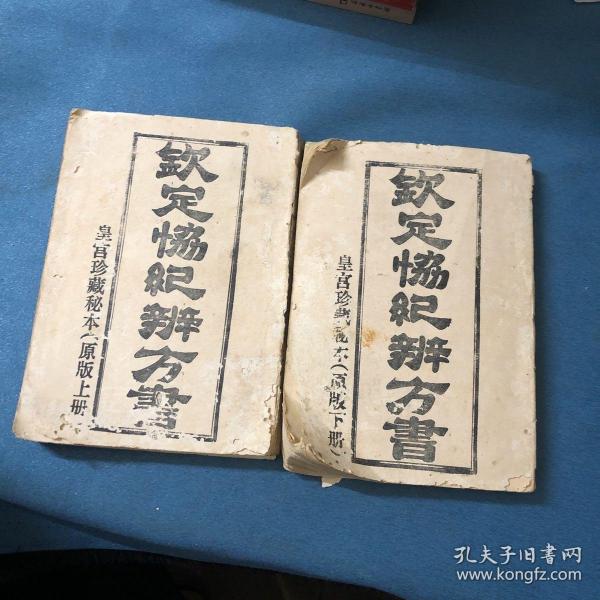 欽定協紀辨方書
皇宫珍藏秘本(原版上册
欽定協紀辨方書
皇宫珍藏秘本(原版下册)
孔夫子旧书网
www.kongfz.com